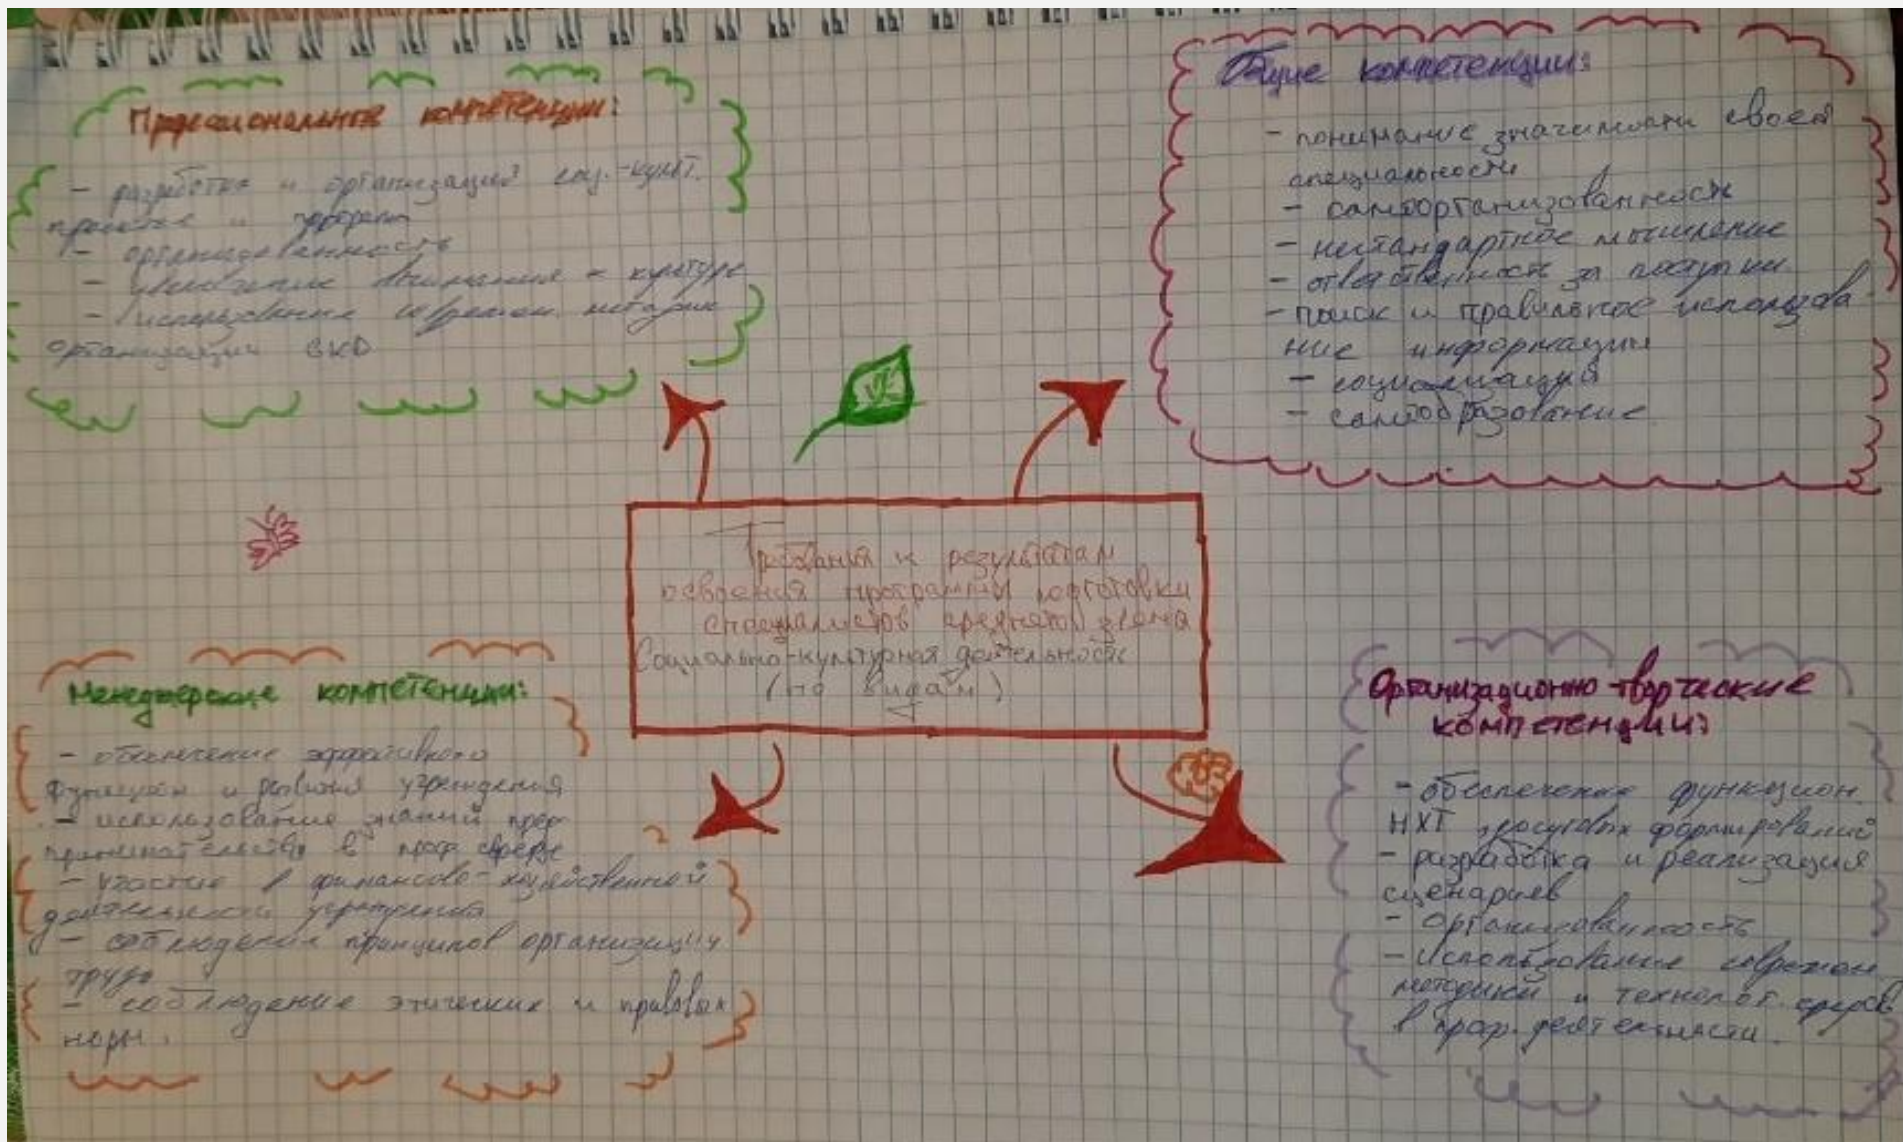 Профессиональные компетенции:
- разработка и организация соц.-культ.
проектов и программ
- организованность
- внимания к культуре
- использование современ. методик
организации СКД
Общие компетенции:
- понимание значимости своей
специальности
- самоорганизованность
- нестандартное мышление
- ответственность за поступки
- поиск и правильное использова
ние информации
- социализация
- самообразование
Требования к результатам
освоения программы подготовки
специалистов среднего звена
Социально-культурная деятельность
(по видам)
Менеджерские компетенции:
- обеспечение эффективного
функцион и развития учреждения
- использование знаний пред
принимательства в проф сфере
- участие в финансово-хозяйственной
деятельности учреждений
- соблюдение принципов организации
труда
- соблюдение этических и правовых
норм.
Организационно-творческие
компетенции:
- обеспечение функцион.
НХТ, досуговых формирований
- разработка и реализация
сценариев
- организованность
- Использование современ
методики и технолог. средств
в проф. деятельности.